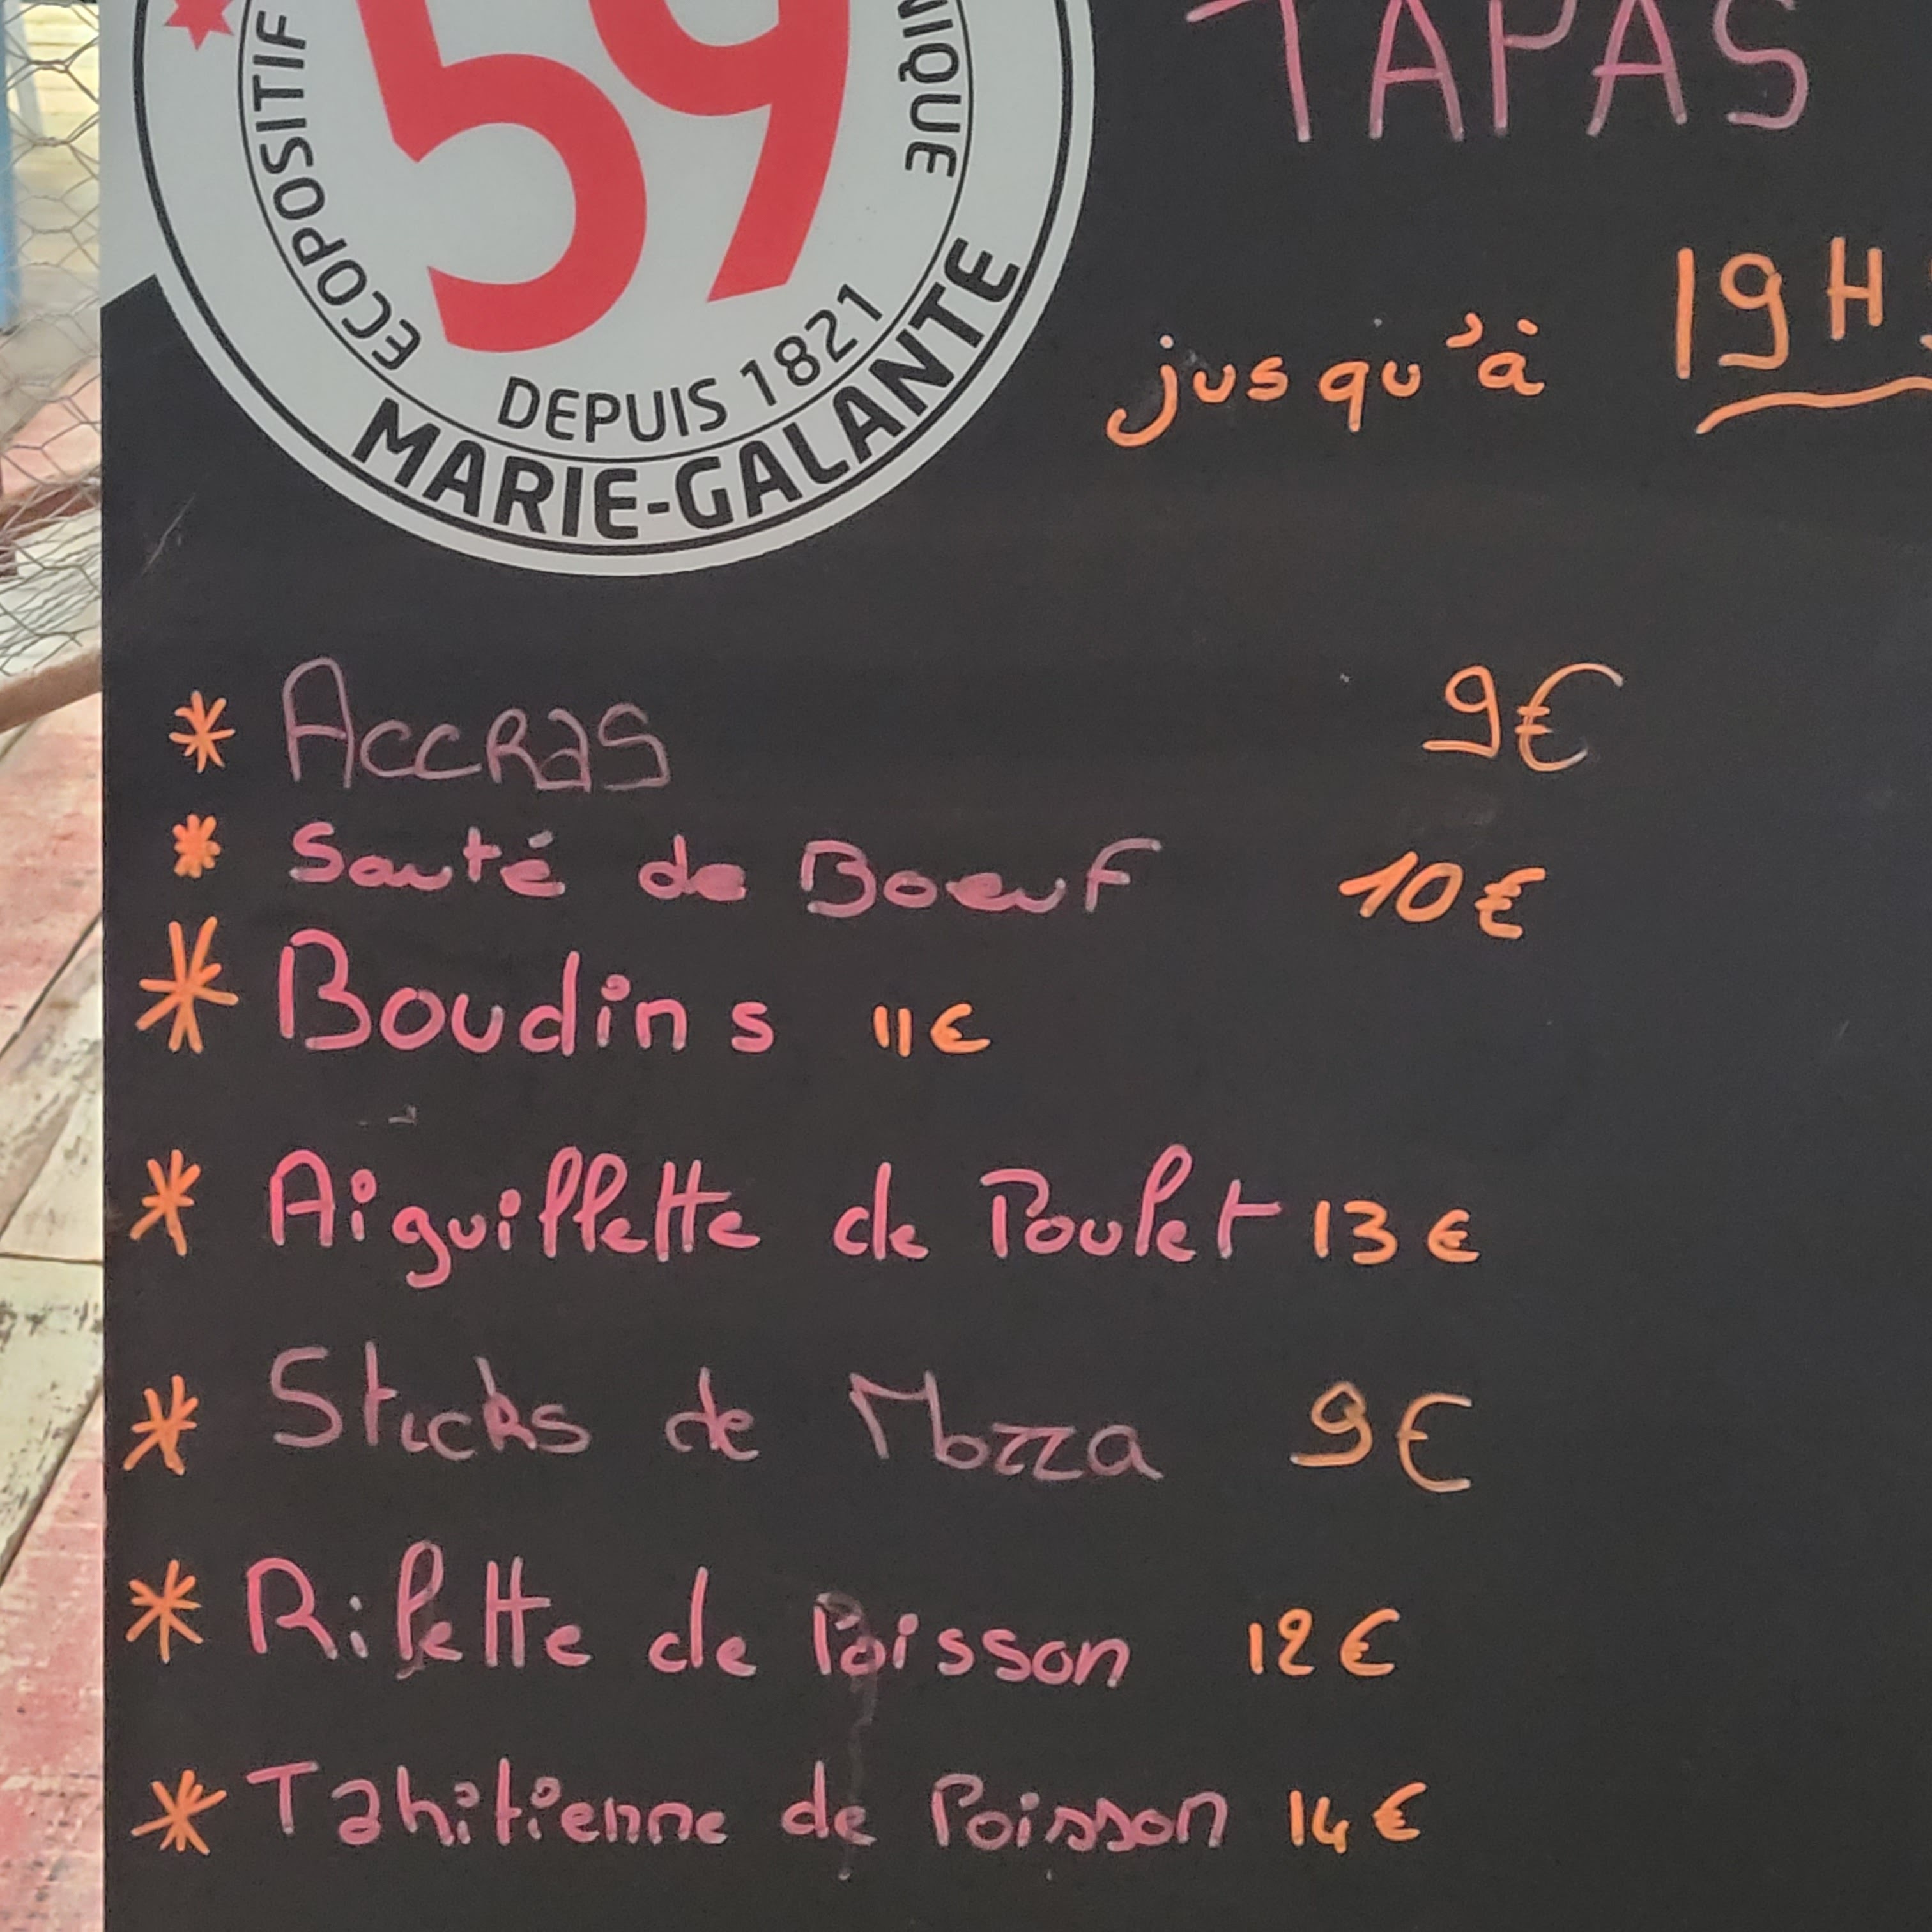 59
ECOPOSITIF
DEPUIS 1821
MARIE-GALANTE
TAPAS
jusqu'à 19H
* Accras 9€
* Sauté de Boeuf 10€
* Boudins 11€
* Aiguillette de Poulet 13€
* Sticks de Mozza 9€
* Rillette de Poisson 12€
* Tahitienne de Poisson 14€